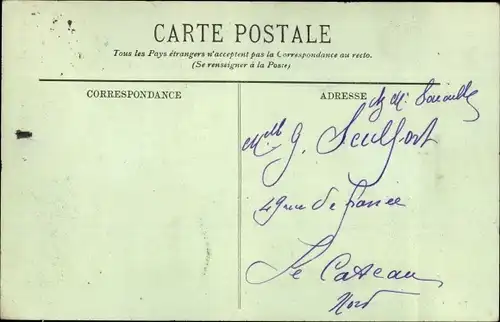 CARTE POSTALE
Tous les Pays étrangers n'acceptent pas la Correspondance au recto.
(Se renseigner à la Poste)
CORRESPONDANCE
ADRESSE
Melle G. Seulfort
49 rue de France
Le Cateau
Nord